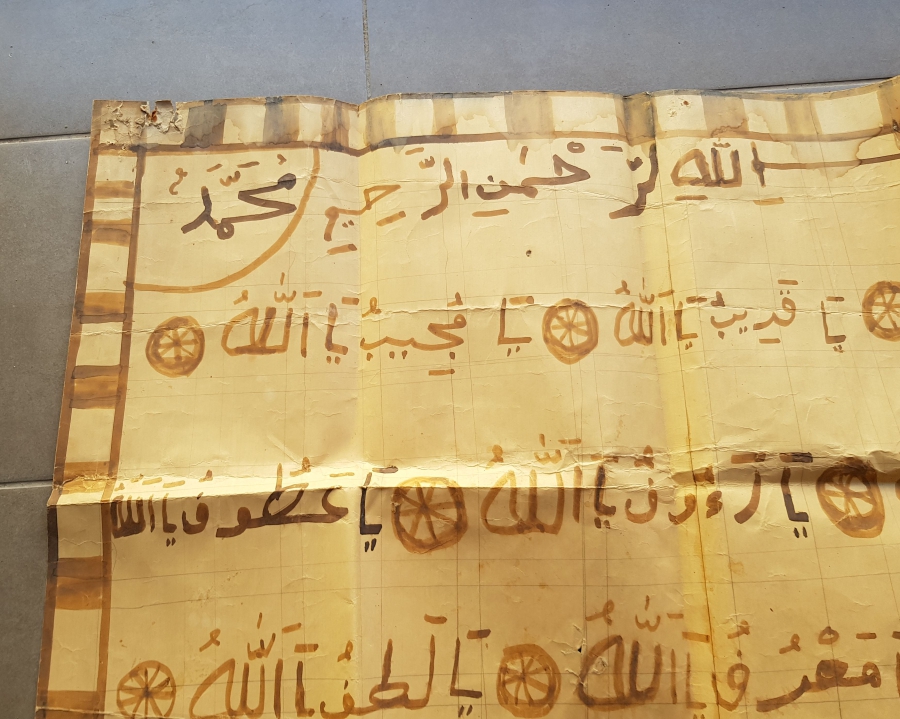 اللَّهِ الرَّحْمٰنِ الرَّحِيمِ مُحَمَّدٌ
يَا قَرِيبُ يَا اَللَّهُ يَا مُجِيبُ يَا اَللَّهُ
يَا رَءُوفُ يَا اَللَّهُ يَا عَطُوفُ يَا اَللَّهُ
مَعْرُوفُ يَا اَللَّهُ يَا لَطِفُ يَا اَللَّهُ